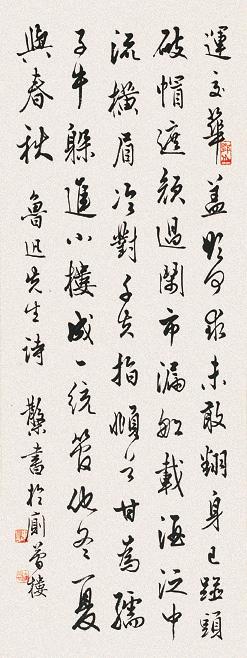 運交華蓋欲何求未敢翻身已踫頭
破帽遮顏過鬧市漏船載酒泛中
流橫眉冷對千夫指頫首甘為孺
子牛躲進小樓成一統管他冬夏
與春秋 魯迅先生詩 書於樓